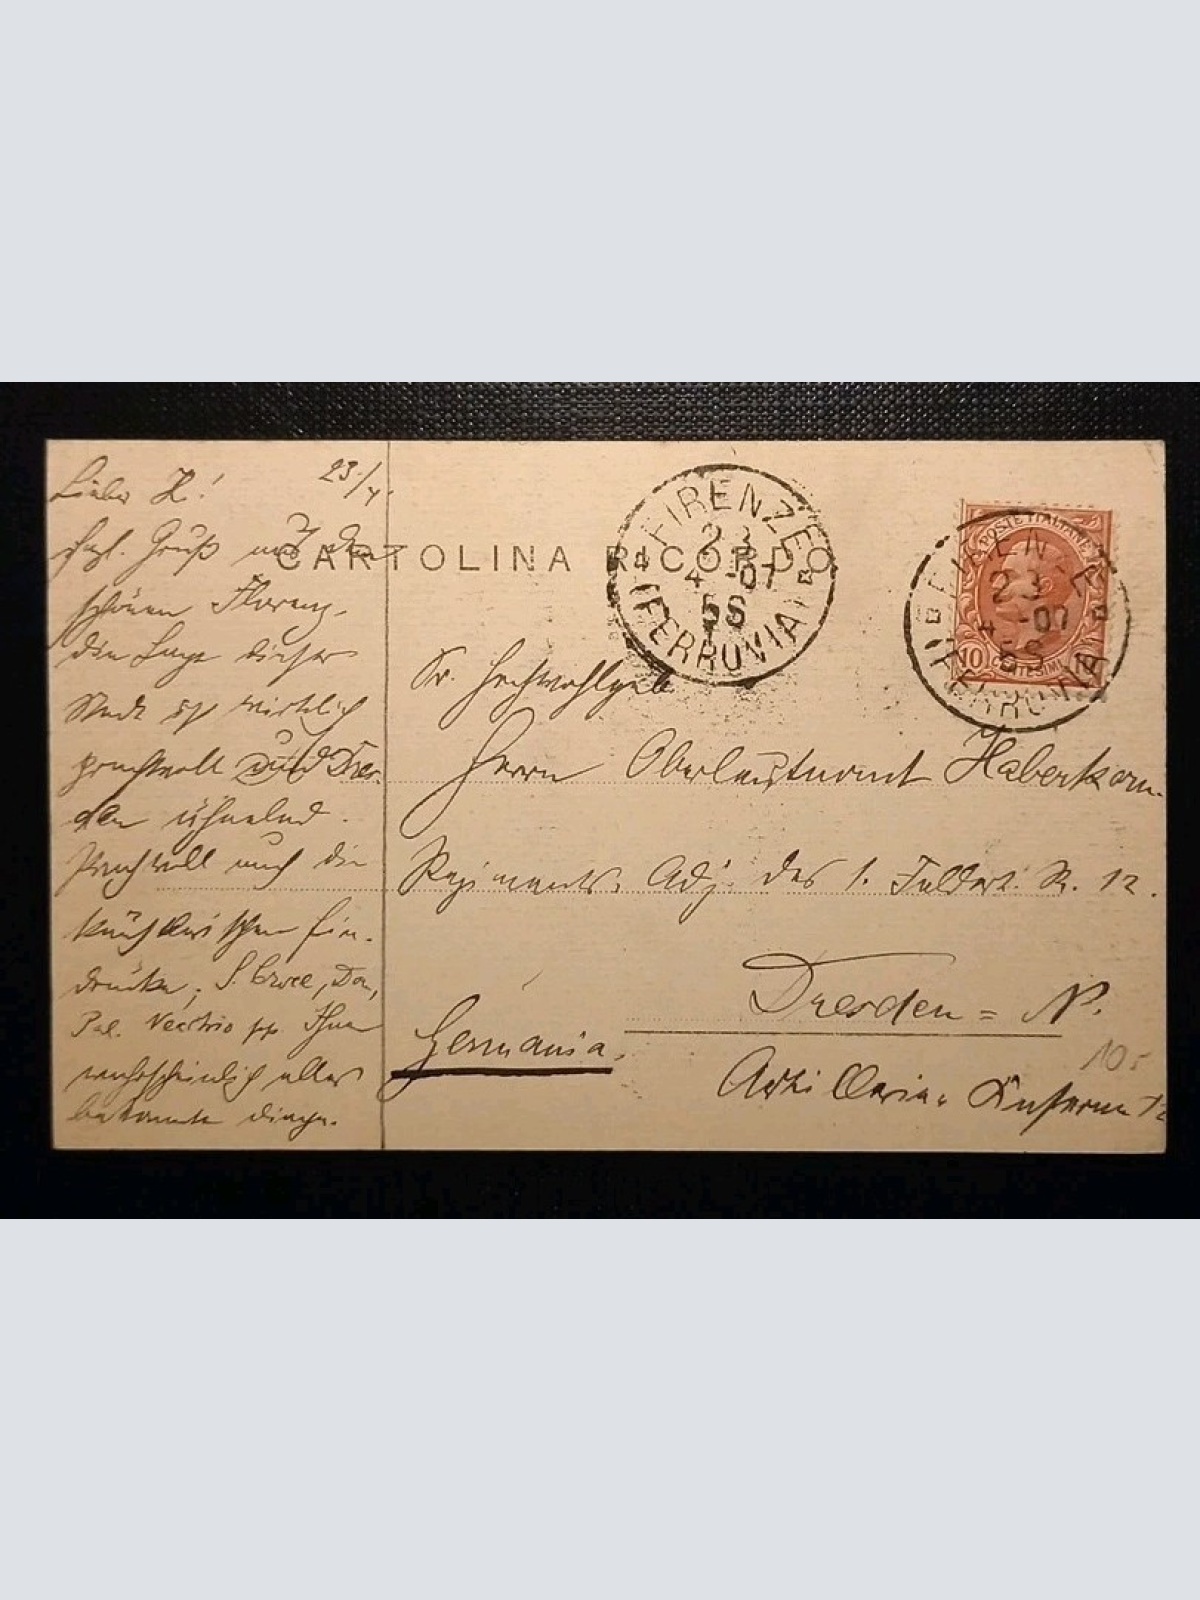 Lieber H! 23./4.
hzl. Gruß aus dem
schönen Florenz,
die Lage dieser
Stadt ist wirklich
prachtvoll und Dres-
den ähnelnd.
Prachtvoll auch die
künstlerischen Ein-
drücke; S. Croce, Dom,
Pal. Vecchio pp. Ihnen
wahrscheinlich alles
bekannte Dinge.
CARTOLINA RICORDO
FIRENZE
23
4 -07
5S
(FERROVIA)
POSTE ITALIANE
10 CENTESIMI
FIRENZE
23
4 -07
5S
(FERROVIA)
Sr. Hochwohlgeb
Herrn Oberleutnant Haberkorn
Regiments Adj. des 1. Feldart. R. 12.
Dresden = N.
Germania.
Artillerie-Kaserne
10,-